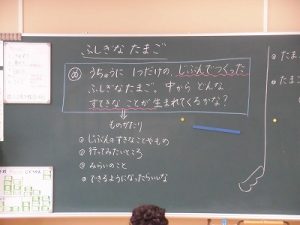 ふしぎな たまご
め うちゅうに 1つだけの、じぶんでつくった
ふしぎなたまご。中から どんな
すてきなことが 生まれてくるかな?
ものがたり
・じぶんのすきなことやもの
・行ってみたいところ
・みらいのこと
・できるようになったらいいな
・たま
・たまご